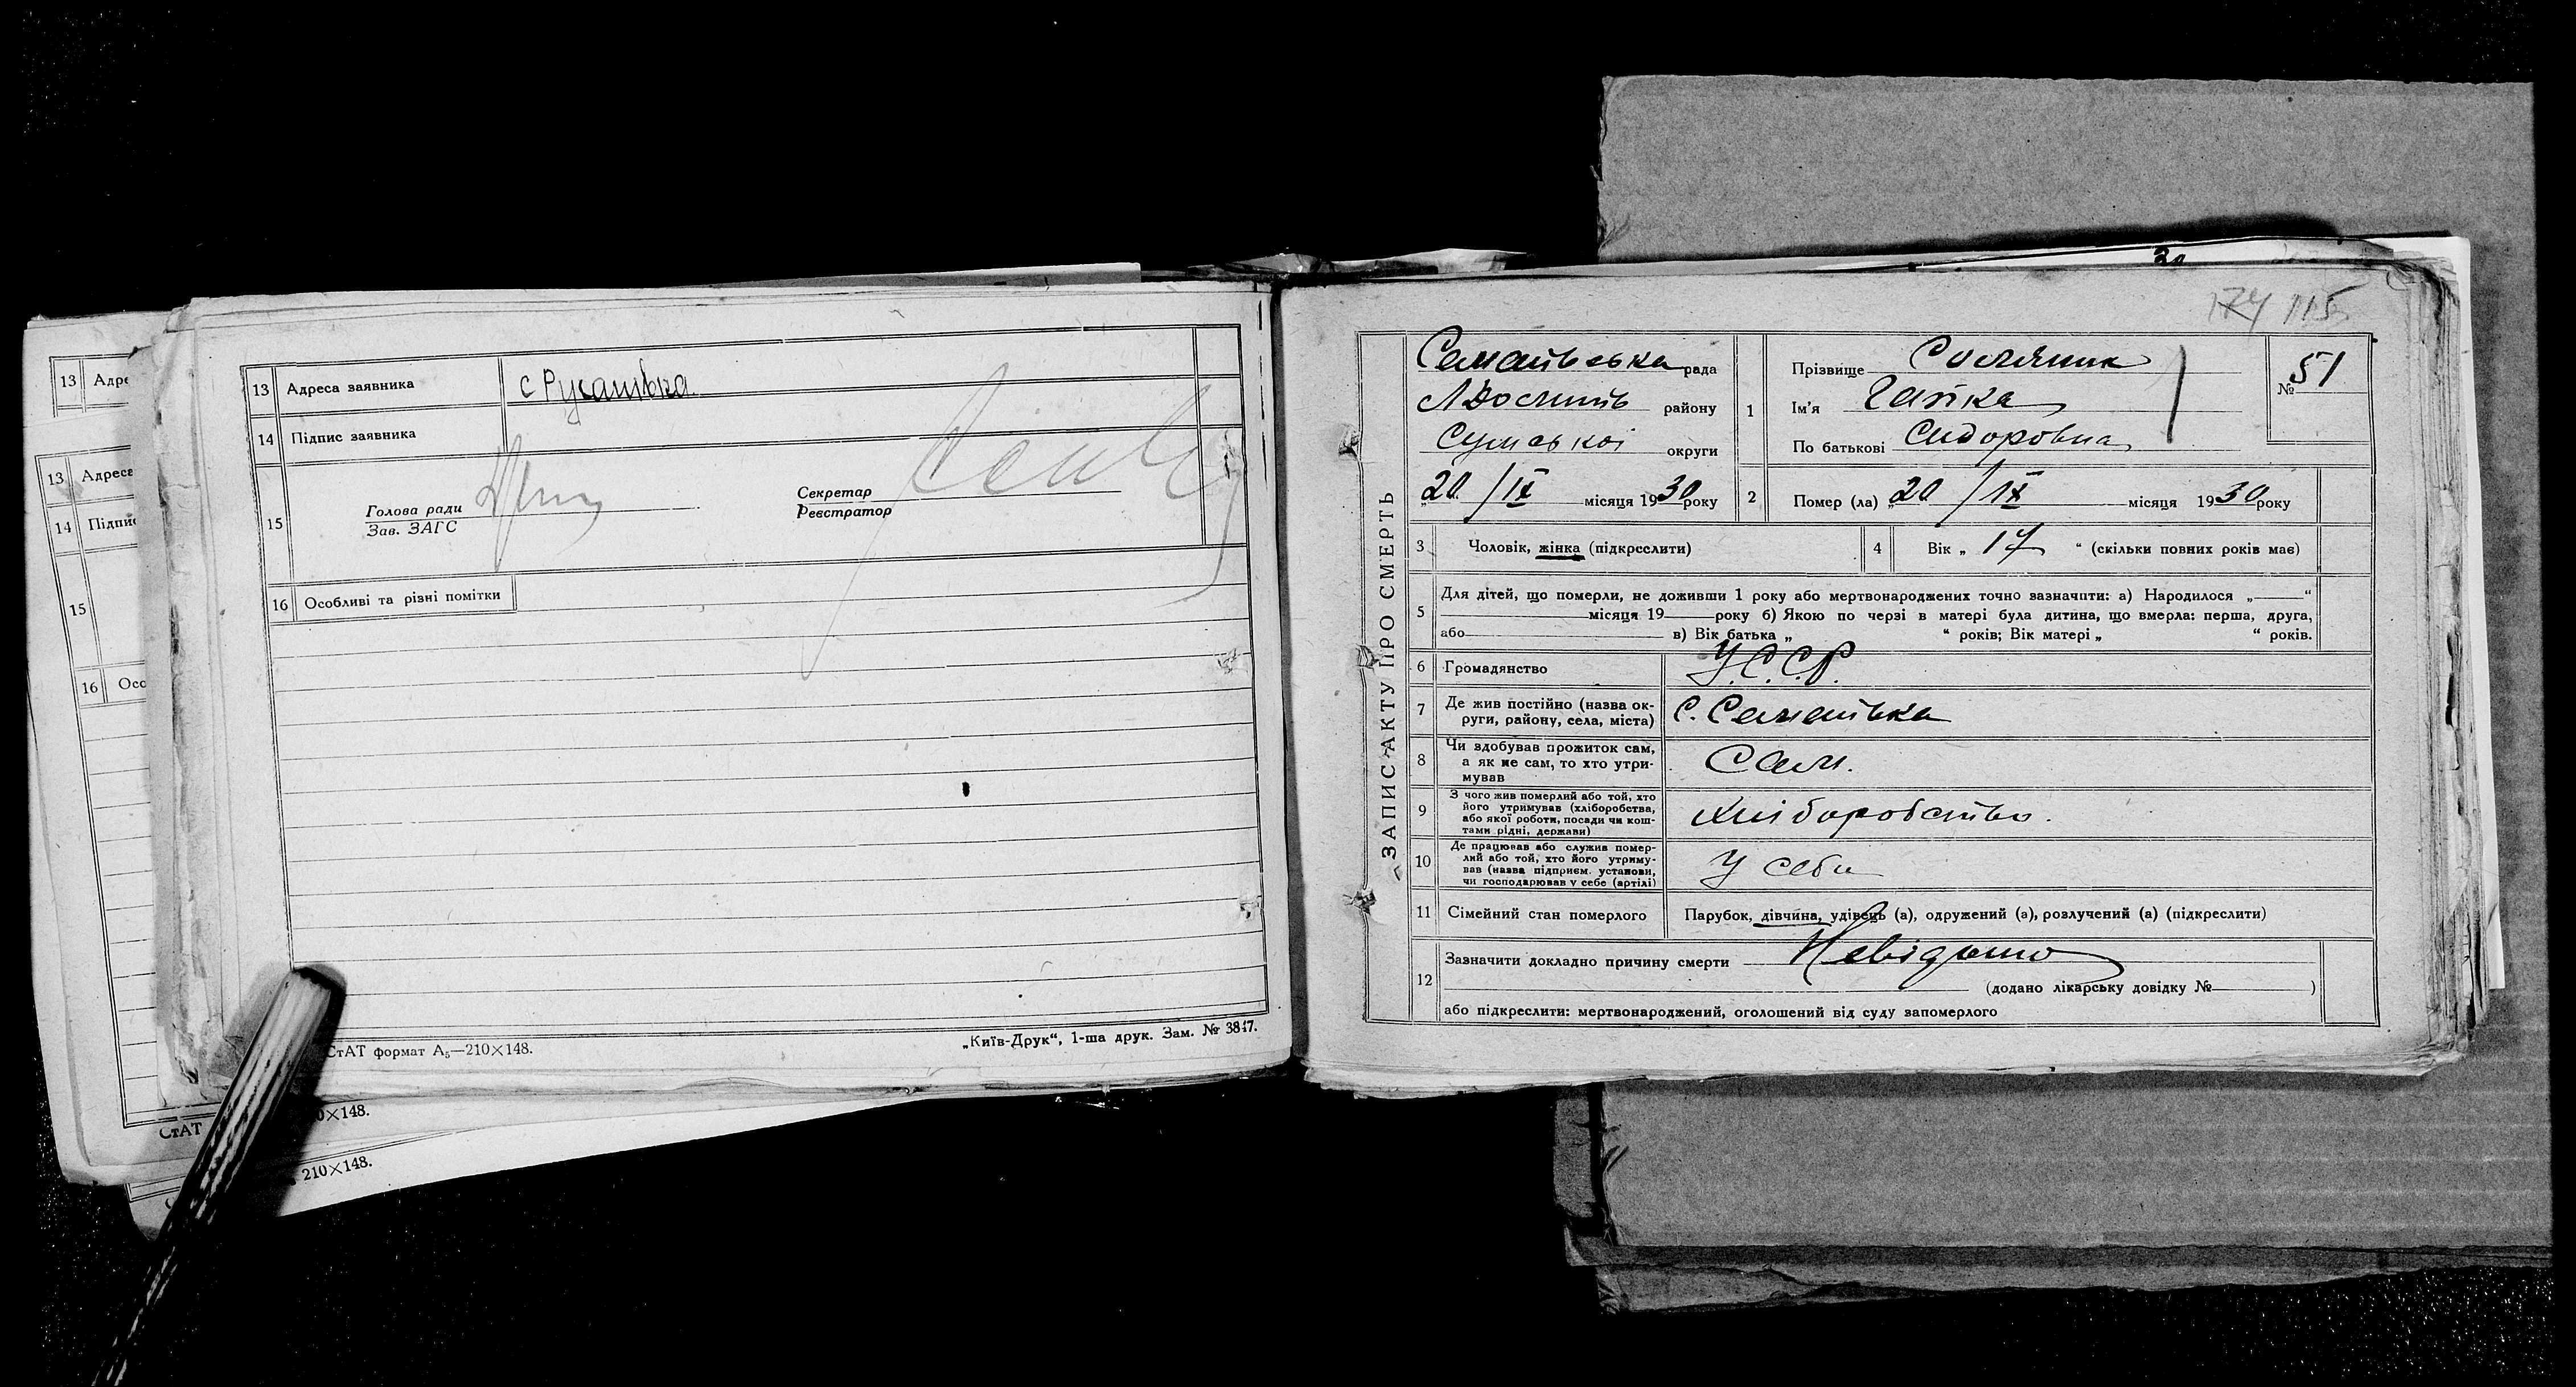 13 Адре
13 Адреса
14 Підпис
15
16 Осо
СтАТ
0×148.
210×148.
13 Адреса заявника с Русанівка.
14 Підпис заявника
15 Голова ради Секретар
Зав. ЗАГС Реєстратор
16 Особливі та різні помітки
СтАТ формат А₅—210×148.
„Київ-Друк“, 1-ша друк. Зам. № 3847.
30
174 115
ЗАПИС АКТУ ПРО СМЕРТЬ
Семанівська рада
району
Сумської округи
„20 / IX місяця 1930 року
1 Прізвище
Ім'я Гапка
По батькові Сидоровна
№ 51
2 Помер (ла) „20 / IX місяця 1930 року
3 Чоловік, жінка (підкреслити)
4 Вік „ 17 “ (скільки повних років має)
5 Для дітей, що померли, не доживши 1 року або мертвонароджених точно зазначити: а) Народилося „ “
місяця 19 року б) Якою по черзі в матері була дитина, що вмерла: перша, друга,
або в) Вік батька „ “ років; Вік матері „ “ років.
6 Громадянство У.С.С.Р.
7 Де жив постійно (назва ок-
руги, району, села, міста) С. Семанівка
8 Чи здобував прожиток сам,
а як не сам, то хто утри-
мував Сам.
9 З чого жив померлий або той, хто
його утримував (хліборобства,
або якої роботи, посади чи кош-
тами рідні, держави) Хліборобство.
10 Де працював або служив помер-
лий або той, хто його утриму-
вав (назва підприєм. установи,
чи господарював у себе (артілі) У себе
11 Сімейний стан померлого Парубок, дівчина, удівець (а), одружений (а), розлучений (а) (підкреслити)
12 Зазначити докладно причину смерти Невідомо
(додано лікарську довідку № )
або підкреслити: мертвонароджений, оголошений від суду запомерлого